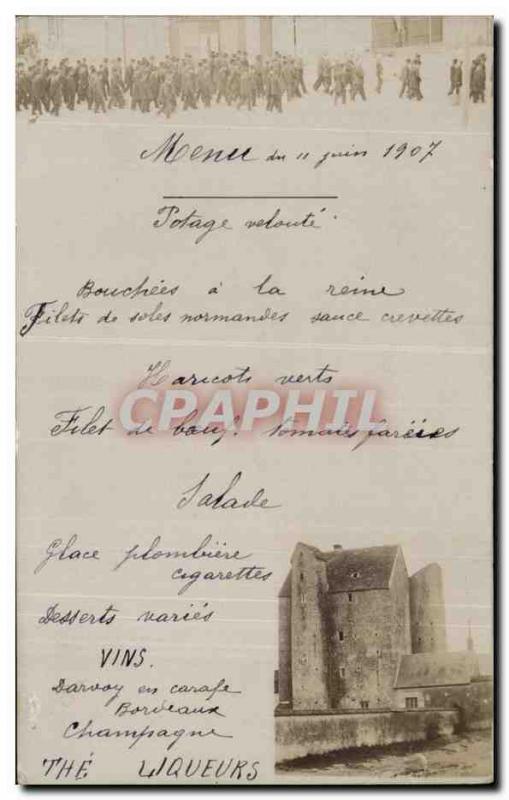 Menu du 11 juin 1907
Potage velouté
Bouchées à la reine
Filets de soles normandes sauce crevettes
Haricots verts
CPAPHIL
Filet de bœuf. tomates farcies
Salade
Glace plombière
cigarettes
Desserts variés
VINS.
Darvoy en carafe
Bordeaux
Champagne
THÉ LIQUEURS